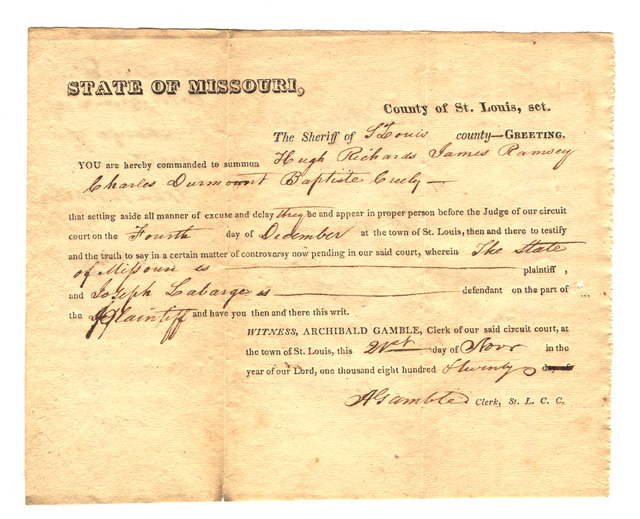 STATE OF MISSOURI,
County of St. Louis, sct.
The Sheriff of St Louis county—GREETING.
YOU are hereby commanded to summon Hugh Richards James Ramsey
Charles Durmount Baptiste Creely —
that setting aside all manner of excuse and delay they be and appear in proper person before the Judge of our circuit
court on the Fourth day of December at the town of St. Louis, then and there to testify
and the truth to say in a certain matter of controversy now pending in our said court, wherein The State
of Missouri is — plaintiff,
and Joseph Labarge is — defendant on the part of
the Plaintiff and have you then and there this writ.
WITNESS, ARCHIBALD GAMBLE, Clerk of our said circuit court, at
the town of St. Louis, this 21st day of Novr in the
year of our Lord, one thousand eight hundred & twenty
A Gamble Clerk, St. L. C. C.